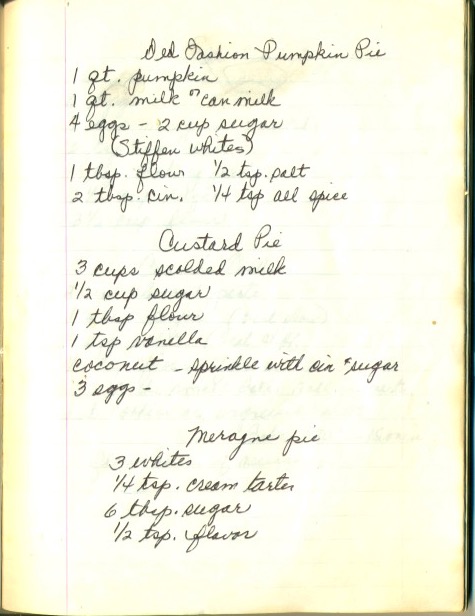 Old Fashion Pumpkin Pie
1 qt. pumpkin
1 qt. milk or can milk
4 eggs - 2 cup sugar
(Stiffen whites)
1 tbsp. flour 1/2 tsp. salt
2 tbsp. cin. 1/4 tsp all spice
Custard Pie
3 cups scolded milk
1/2 cup sugar
1 tbsp flour
1 tsp vanilla
coconut - sprinkle with cin & sugar
3 eggs -
Meragne pie
3 whites
1/4 tsp. cream tarter
6 tbsp. sugar
1/2 tsp. flavor